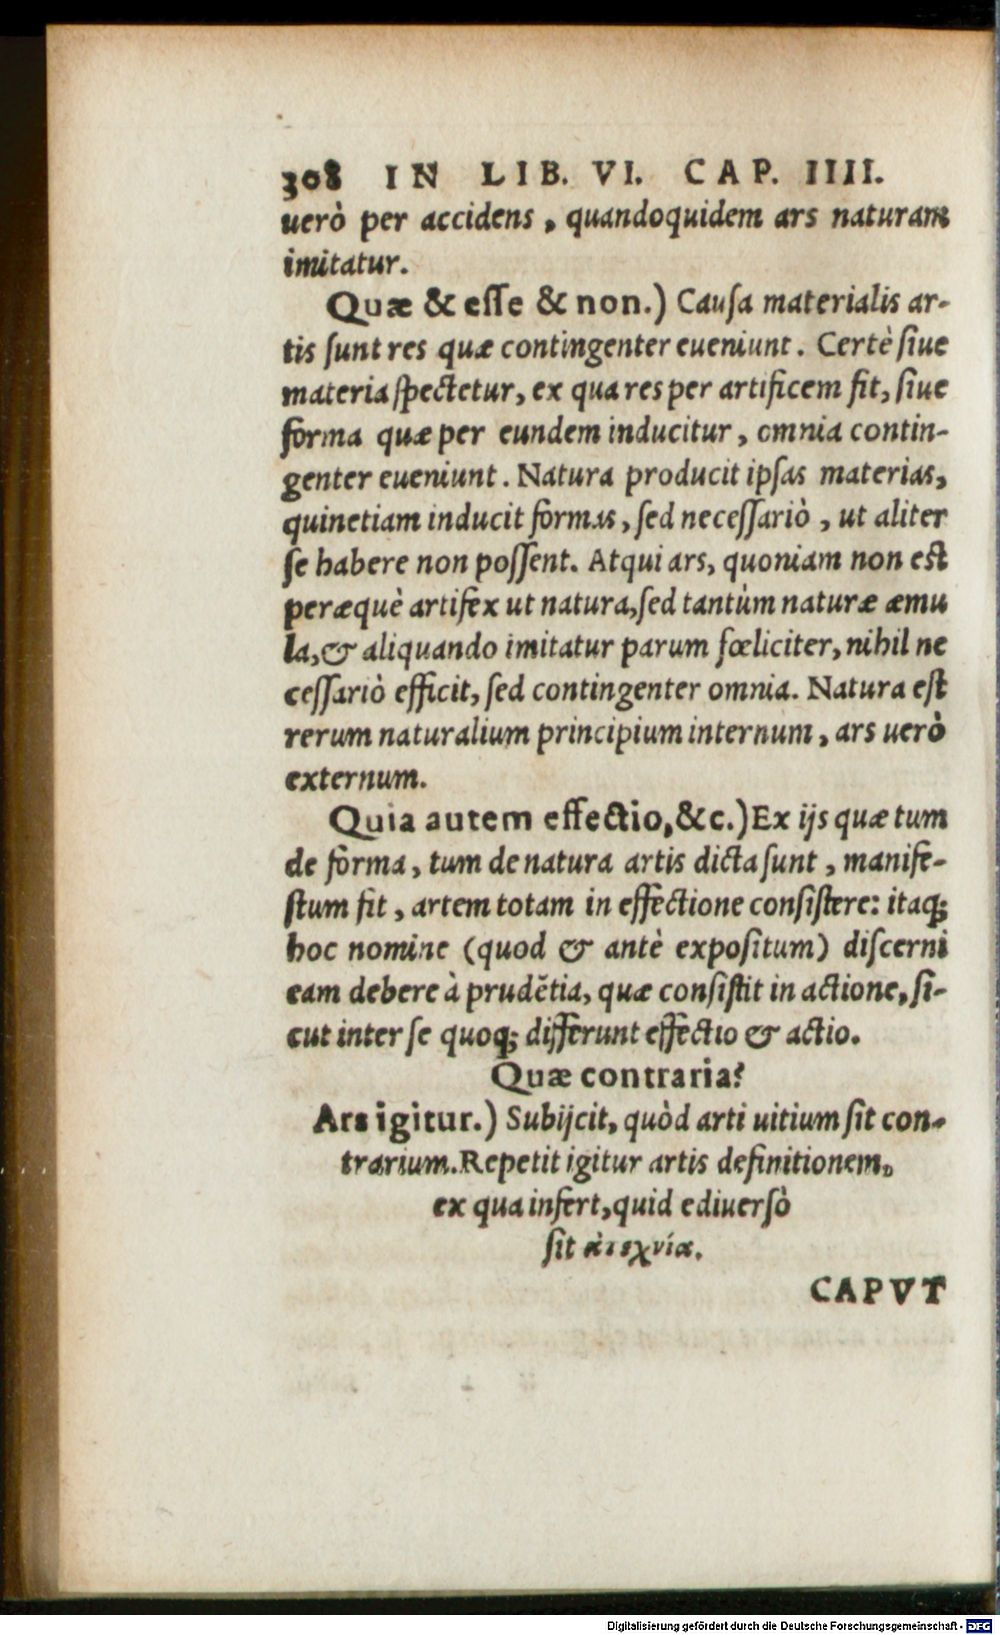 308 IN LIB. VI. CAP. IIII.
uerò per accidens, quandoquidem ars naturam
imitatur.
Quæ & esse & non.) Causa materialis ar-
tis sunt res quæ contingenter eueniunt. Certè siue
materia spectetur, ex qua res per artificem fit, siue
forma quæ per eundem inducitur, omnia contin-
genter eueniunt. Natura producit ipsas materias,
quinetiam inducit formas, sed necessariò, ut aliter
se habere non possent. Atqui ars, quoniam non est
peræquè artifex ut natura, sed tantùm naturæ æmu
la, & aliquando imitatur parum fœliciter, nihil ne
cessariò efficit, sed contingenter omnia. Natura est
rerum naturalium principium internum, ars uerò
externum.
Quia autem effectio, &c.) Ex ijs quæ tum
de forma, tum de natura artis dicta sunt, manife-
stum fit, artem totam in effectione consistere: itaq;
hoc nomine (quod & antè expositum) discerni
eam debere à prudẽtia, quæ consistit in actione, si-
cut inter se quoq; differunt effectio & actio.
Quæ contraria?
Ars igitur.) Subijcit, quòd arti uitium sit con-
trarium. Repetit igitur artis definitionem,
ex qua infert, quid ediuersò
sit ἀτεχνία.
CAPVT
Digitalisierung gefördert durch die Deutsche Forschungsgemeinschaft - DFG